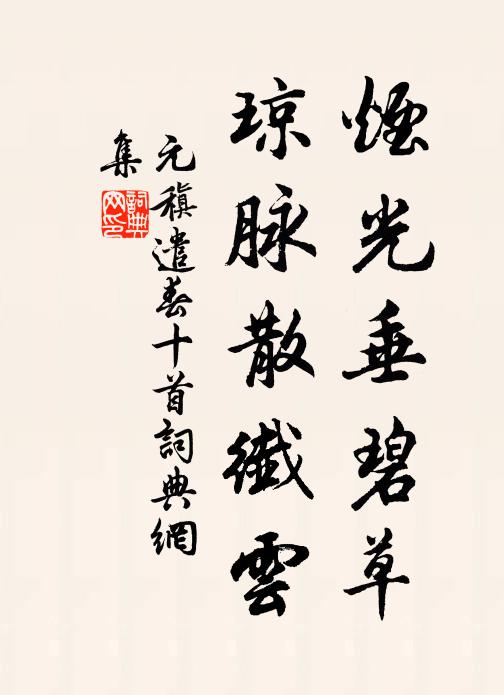 煙光垂碧草
琼脉散纖雲
元稹遣春十首詞典網
集
詞典
网印